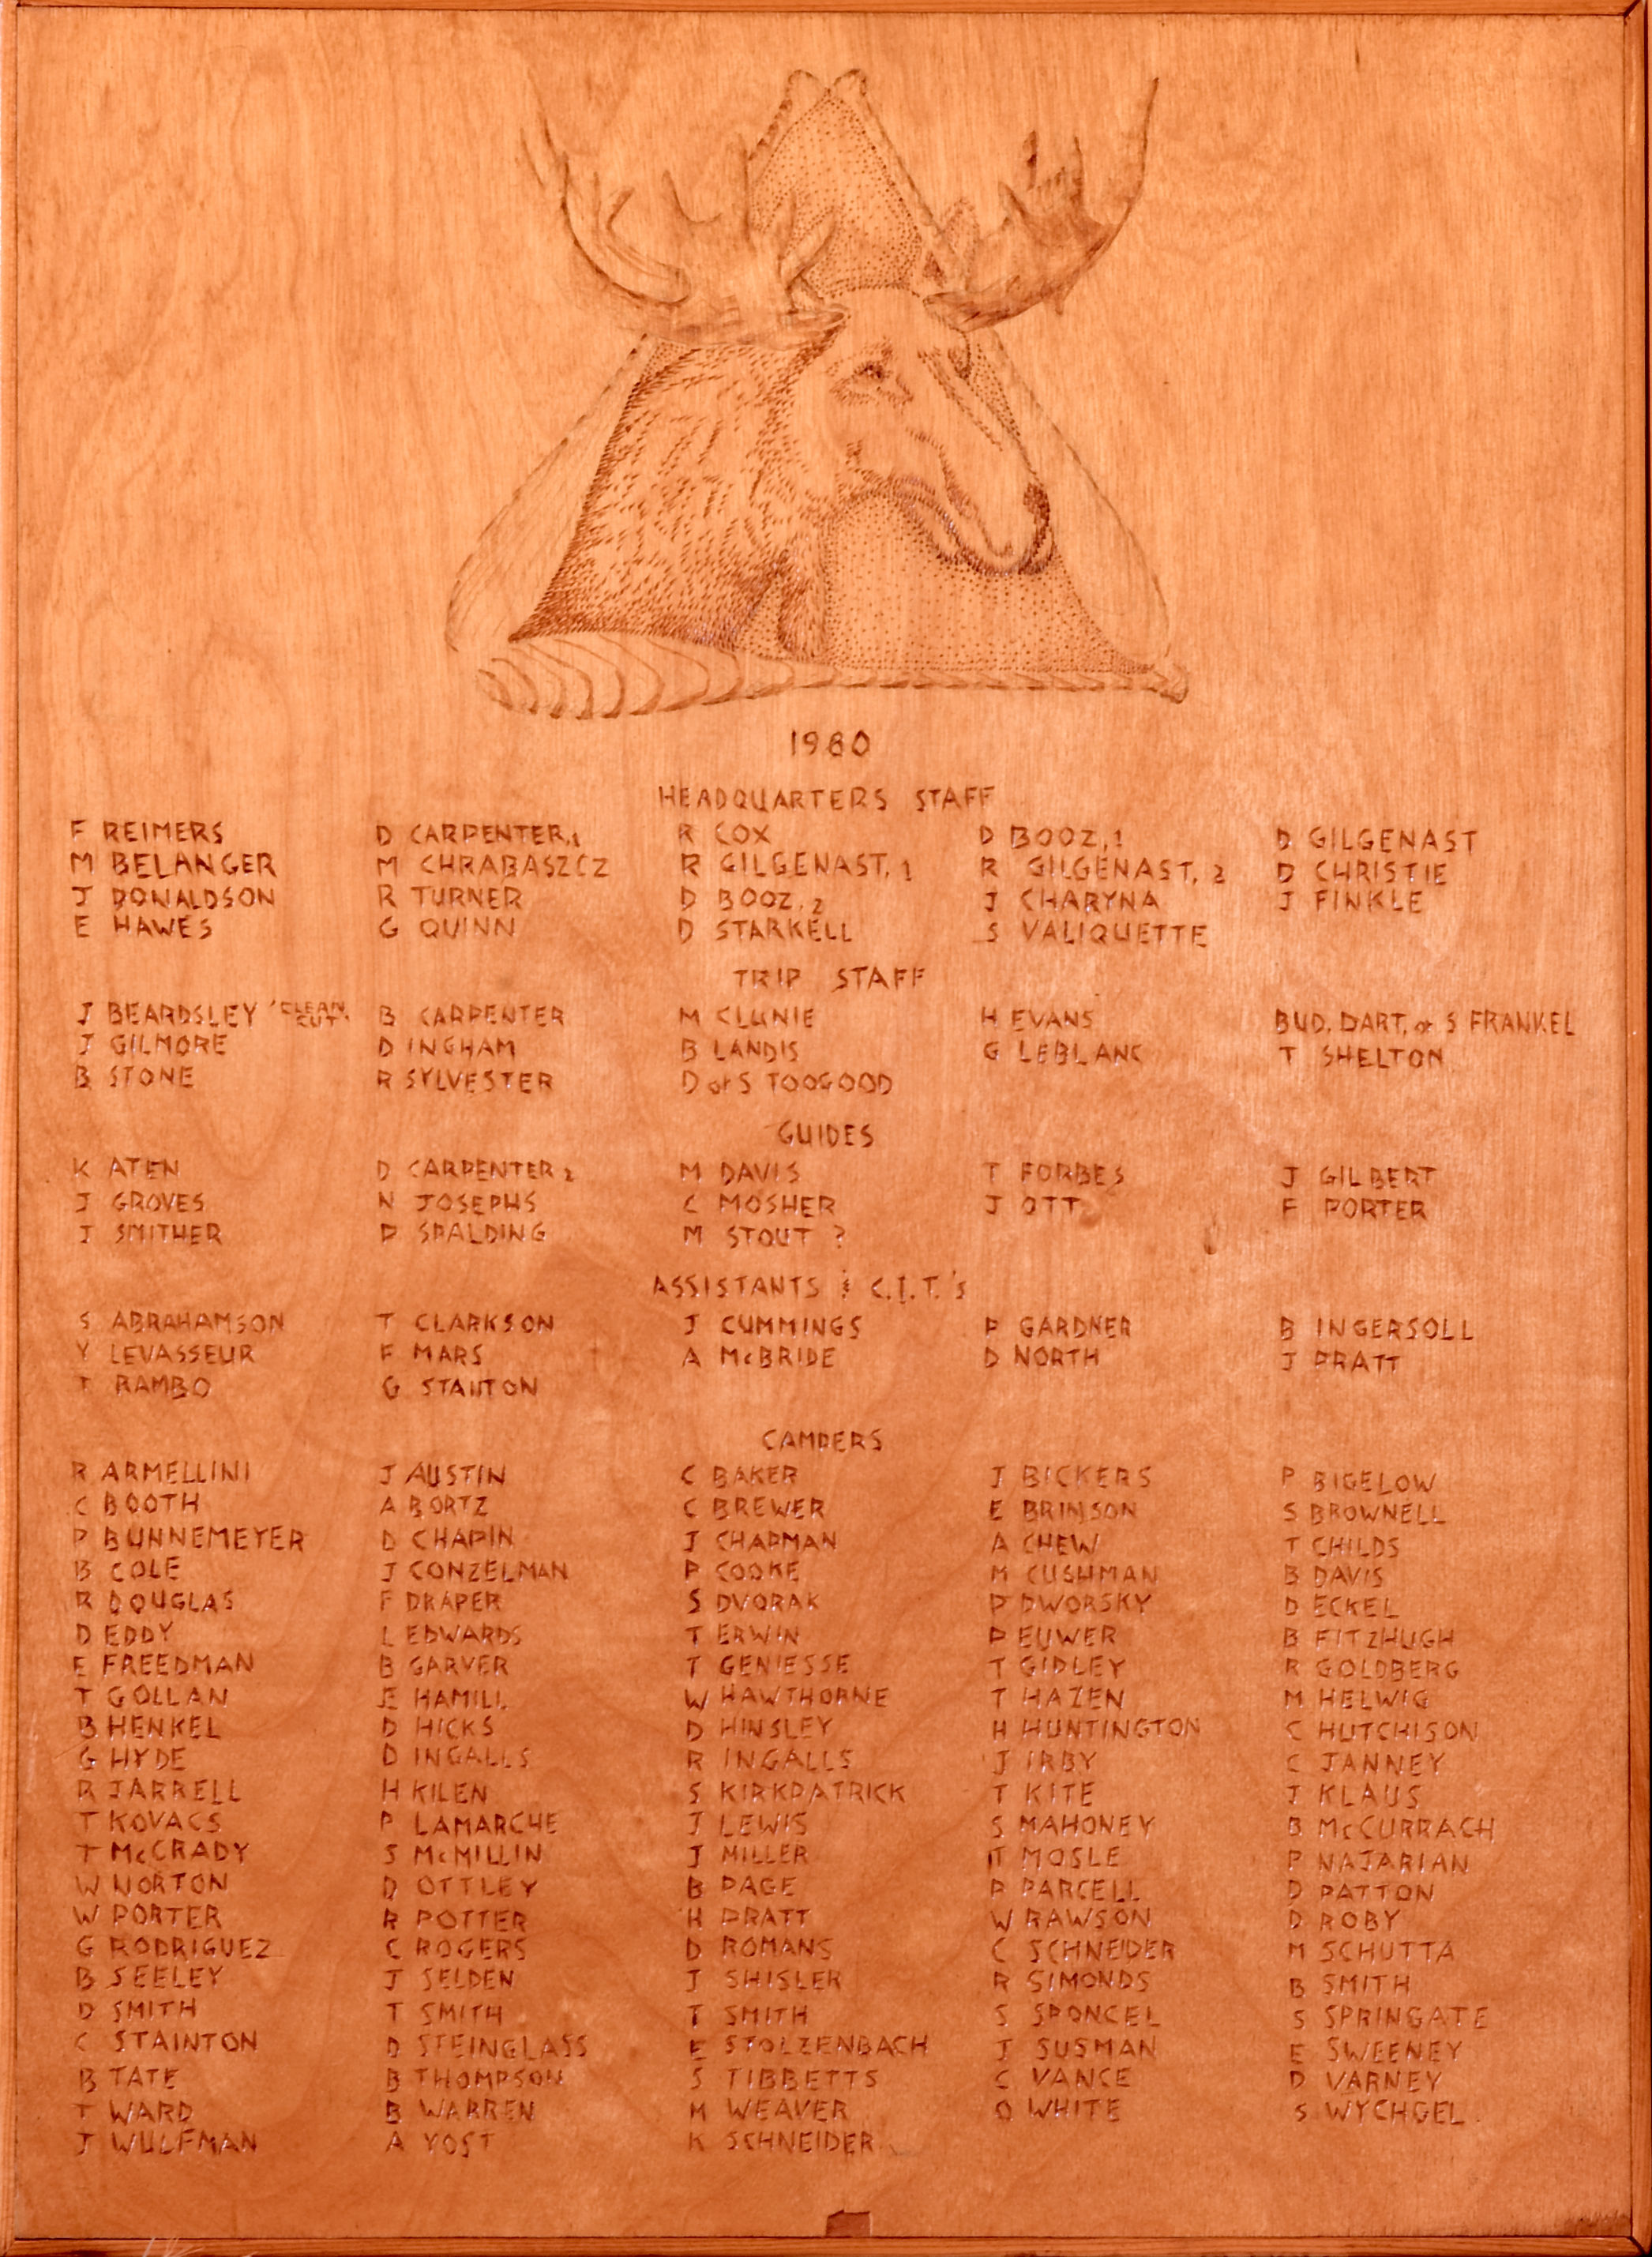 1980
HEADQUARTERS STAFF
F REIMERS D CARPENTER,1 R COX D BOOZ,1 D GILGENAST
M BELANGER M CHRABASZCZ R GILGENAST,1 R GILGENAST,2 D CHRISTIE
J DONALDSON R TURNER D BOOZ,2 J CHARYNA J FINKLE
E HAWES G QUINN D STARKELL S VALIQUETTE
TRIP STAFF
J BEARDSLEY 'CLEAN CUT' B CARPENTER M CLUNIE H EVANS BUD, DART, or S FRANKEL
J GILMORE D INGHAM B LANDIS G LEBLANC T SHELTON
B STONE R SYLVESTER D or S TOOGOOD
GUIDES
K ATEN D CARPENTER 2 M DAVIS T FORBES J GILBERT
J GROVES N JOSEPHS C MOSHER J OTT F PORTER
J SMITHER P SPALDING M STOUT ?
ASSISTANTS & C.I.T.'s
S ABRAHAMSON T CLARKSON J CUMMINGS P GARDNER B INGERSOLL
Y LEVASSEUR F MARS A McBRIDE D NORTH J PRATT
T RAMBO G STANTON
CAMPERS
R ARMELLINI J AUSTIN C BAKER J BICKERS P BIGELOW
C BOOTH A BORTZ C BREWER E BRINSON S BROWNELL
P BUNNEMEYER D CHAPIN J CHAPMAN A CHEW T CHILDS
B COLE J CONZELMAN P COOKE M CUSHMAN B DAVIS
R DOUGLAS F DRAPER S DVORAK P DWORSKY D ECKEL
D EDDY L EDWARDS T ERWIN P EUWER B FITZHUGH
E FREEDMAN B GARVER T GENIESSE T GIDLEY R GOLDBERG
T GOLLAN E HAMILL W HAWTHORNE T HAZEN M HELWIG
B HENKEL D HICKS D HINSLEY H HUNTINGTON C HUTCHISON
G HYDE D INGALLS R INGALLS J IRBY C JANNEY
R JARRELL H KILEN S KIRKPATRICK T KITE J KLAUS
T KOVACS P LAMARCHE J LEWIS S MAHONEY B McCURRACH
T McCRADY S McMILLIN J MILLER T MOSLE P NAJARIAN
W NORTON D OTTLEY B PAGE P PARCELL D PATTON
W PORTER R POTTER H PRATT W RAWSON D ROBY
G RODRIGUEZ C ROGERS D ROMANS C SCHNEIDER M SCHUTTA
B SEELEY J SELDEN J SHISLER R SIMONDS B SMITH
D SMITH T SMITH T SMITH S SPONCEL S SPRINGATE
C STAINTON D STEINGLASS E STOLZENBACH J SUSMAN E SWEENEY
B TATE B THOMPSON S TIBBETTS C VANCE D VARNEY
T WARD B WARREN M WEAVER O WHITE S WYCHGEL
J WULFMAN A YOST K SCHNEIDER